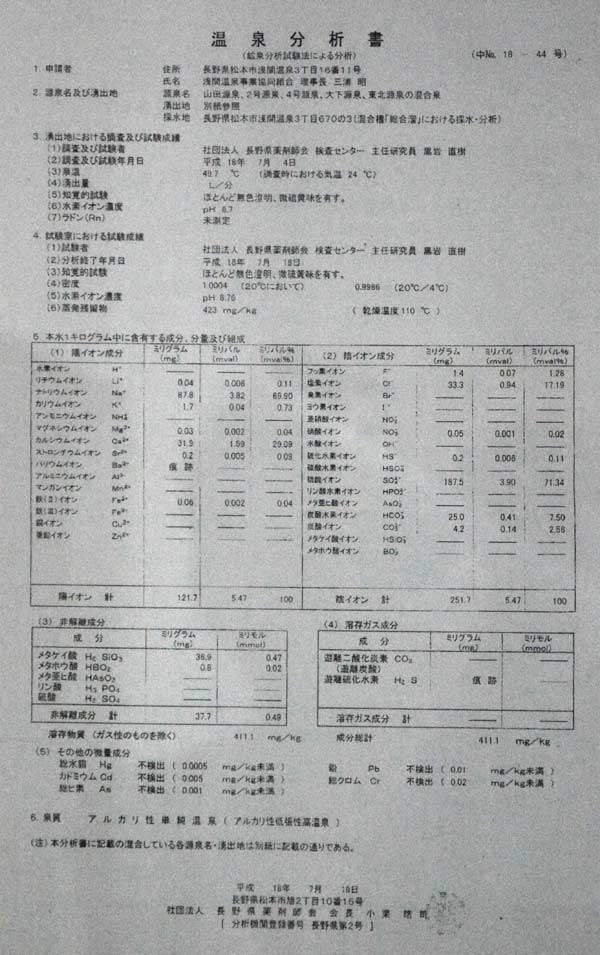 温泉分析書
(鉱泉分析試験法による分析) (中No. 18 - 44 号)
1. 申請者 住所 長野県松本市浅間温泉3丁目16番11号
氏名 浅間温泉事業協同組合 理事長 三浦 昭
2. 源泉名及び湧出地 源泉名 山田源泉、2号源泉、4号源泉、大下源泉、東北源泉の混合泉
湧出地 別紙参照
採水地 長野県松本市浅間温泉3丁目670の3(混合槽「総合溜」における採水・分析)
3. 湧出地における調査及び試験成績
(1)調査及び試験者 社団法人 長野県薬剤師会 検査センター 主任研究員 黒岩 直樹
(2)調査及び試験年月日 平成 18年 7月 4日
(3)泉温 49.7 ℃ (調査時における気温 24 ℃)
(4)湧出量 L/分
(5)知覚的試験 ほとんど無色澄明、微硫黄味を有す。
(6)水素イオン濃度 pH 8.7
(7)ラドン(Rn) 未測定
4. 試験室における試験成績
(1)試験者 社団法人 長野県薬剤師会 検査センター 主任研究員 黒岩 直樹
(2)分析終了年月日 平成 18年 7月 18日
(3)知覚的試験 ほとんど無色澄明、微硫黄味を有す。
(4)密度 1.0004 (20℃において) 0.9986 (20℃/4℃)
(5)水素イオン濃度 pH 8.76
(6)蒸発残留物 423 mg/kg (乾燥温度110 ℃)
5. 本水1キログラム中に含有する成分、分量及び組成
(1) 陽イオン成分 ミリグラム(mg) ミリバル(mval) ミリバル%(mval%)
水素イオン H⁺ —— —— ——
リチウムイオン Li⁺ 0.04 0.006 0.11
ナトリウムイオン Na⁺ 87.8 3.82 69.90
カリウムイオン K⁺ 1.7 0.04 0.73
アンモニウムイオン NH₄⁺ —— —— ——
マグネシウムイオン Mg²⁺ 0.03 0.002 0.04
カルシウムイオン Ca²⁺ 31.9 1.59 29.09
ストロンチウムイオン Sr²⁺ 0.2 0.005 0.09
バリウムイオン Ba²⁺ 痕跡 —— ——
アルミニウムイオン Al³⁺ —— —— ——
マンガンイオン Mn²⁺ —— —— ——
鉄(Ⅱ)イオン Fe²⁺ 0.06 0.002 0.04
鉄(Ⅲ)イオン Fe³⁺ —— —— ——
銅イオン Cu²⁺ —— —— ——
亜鉛イオン Zn²⁺ —— —— ——
陽イオン 計 121.7 5.47 100
(2) 陰イオン成分 ミリグラム(mg) ミリバル(mval) ミリバル%(mval%)
フッ素イオン F⁻ 1.4 0.07 1.28
塩素イオン Cl⁻ 33.3 0.94 17.19
臭素イオン Br⁻ —— —— ——
ヨウ素イオン I⁻ —— —— ——
亜硝酸イオン NO₂⁻ —— —— ——
硝酸イオン NO₃⁻ 0.05 0.001 0.02
水酸イオン OH⁻ —— —— ——
硫化水素イオン HS⁻ 0.2 0.006 0.11
硫酸水素イオン HSO₄⁻ —— —— ——
硫酸イオン SO₄²⁻ 187.5 3.90 71.34
リン酸水素イオン HPO₄²⁻ —— —— ——
メタ亜ヒ酸イオン AsO₂⁻ —— —— ——
炭酸水素イオン HCO₃⁻ 25.0 0.41 7.50
炭酸イオン CO₃²⁻ 4.2 0.14 2.56
メタケイ酸イオン HSiO₃⁻ —— —— ——
メタホウ酸イオン BO₂⁻ —— —— ——
陰イオン 計 251.7 5.47 100
(3) 非解離成分
成分 ミリグラム(mg) ミリモル(mmol)
メタケイ酸 H₂SiO₃ 36.9 0.47
メタホウ酸 HBO₂ 0.8 0.02
メタ亜ヒ酸 HAsO₂ —— ——
リン酸 H₃PO₄ —— ——
硫酸 H₂SO₄ —— ——
非解離成分 計 37.7 0.49
(4) 溶存ガス成分
成分 ミリグラム(mg) ミリモル(mmol)
遊離二酸化炭素 CO₂ —— ——
(遊離炭酸)
遊離硫化水素 H₂S 痕跡 ——
溶存ガス成分 計 —— ——
溶存物質(ガス性のものを除く) 411.1 mg/kg 成分総計 411.1 mg/kg
(5) その他の微量成分
総水銀 Hg 不検出 ( 0.0005 mg/kg未満 ) 鉛 Pb 不検出 ( 0.01 mg/kg未満 )
カドミウム Cd 不検出 ( 0.005 mg/kg未満 ) 総クロム Cr 不検出 ( 0.02 mg/kg未満 )
総ヒ素 As 不検出 ( 0.001 mg/kg未満 )
6. 泉質 アルカリ性単純温泉 ( アルカリ性低張性高温泉 )
(注) 本分析書に記載の混合している各源泉名・湧出地は別紙に記載の通りである。
平成 18年 7月 18日
長野県松本市旭2丁目10番15号
社団法人 長野県薬剤師会 会長 小栗
[ 分析機関登録番号 長野県第2号 ]